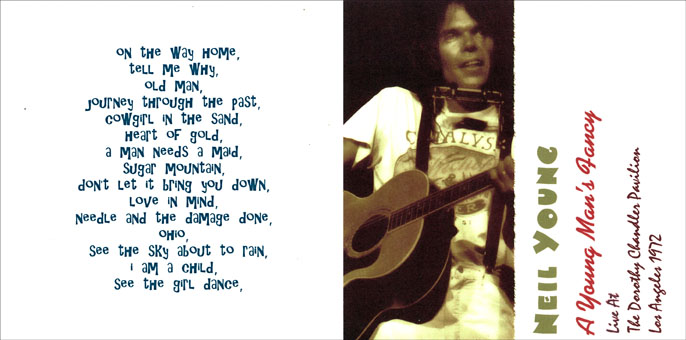 on the way home,
tell me why,
old man,
journey through the past,
cowgirl in the sand,
heart of gold,
a man needs a maid,
sugar mountain,
don't let it bring you down,
love in mind,
needle and the damage done,
ohio,
see the sky about to rain,
i am a child,
see the girl dance,
NEIL YOUNG
A Young Man's Fancy
Live At
The Dorothy Chandler Pavilion
Los Angeles 1972